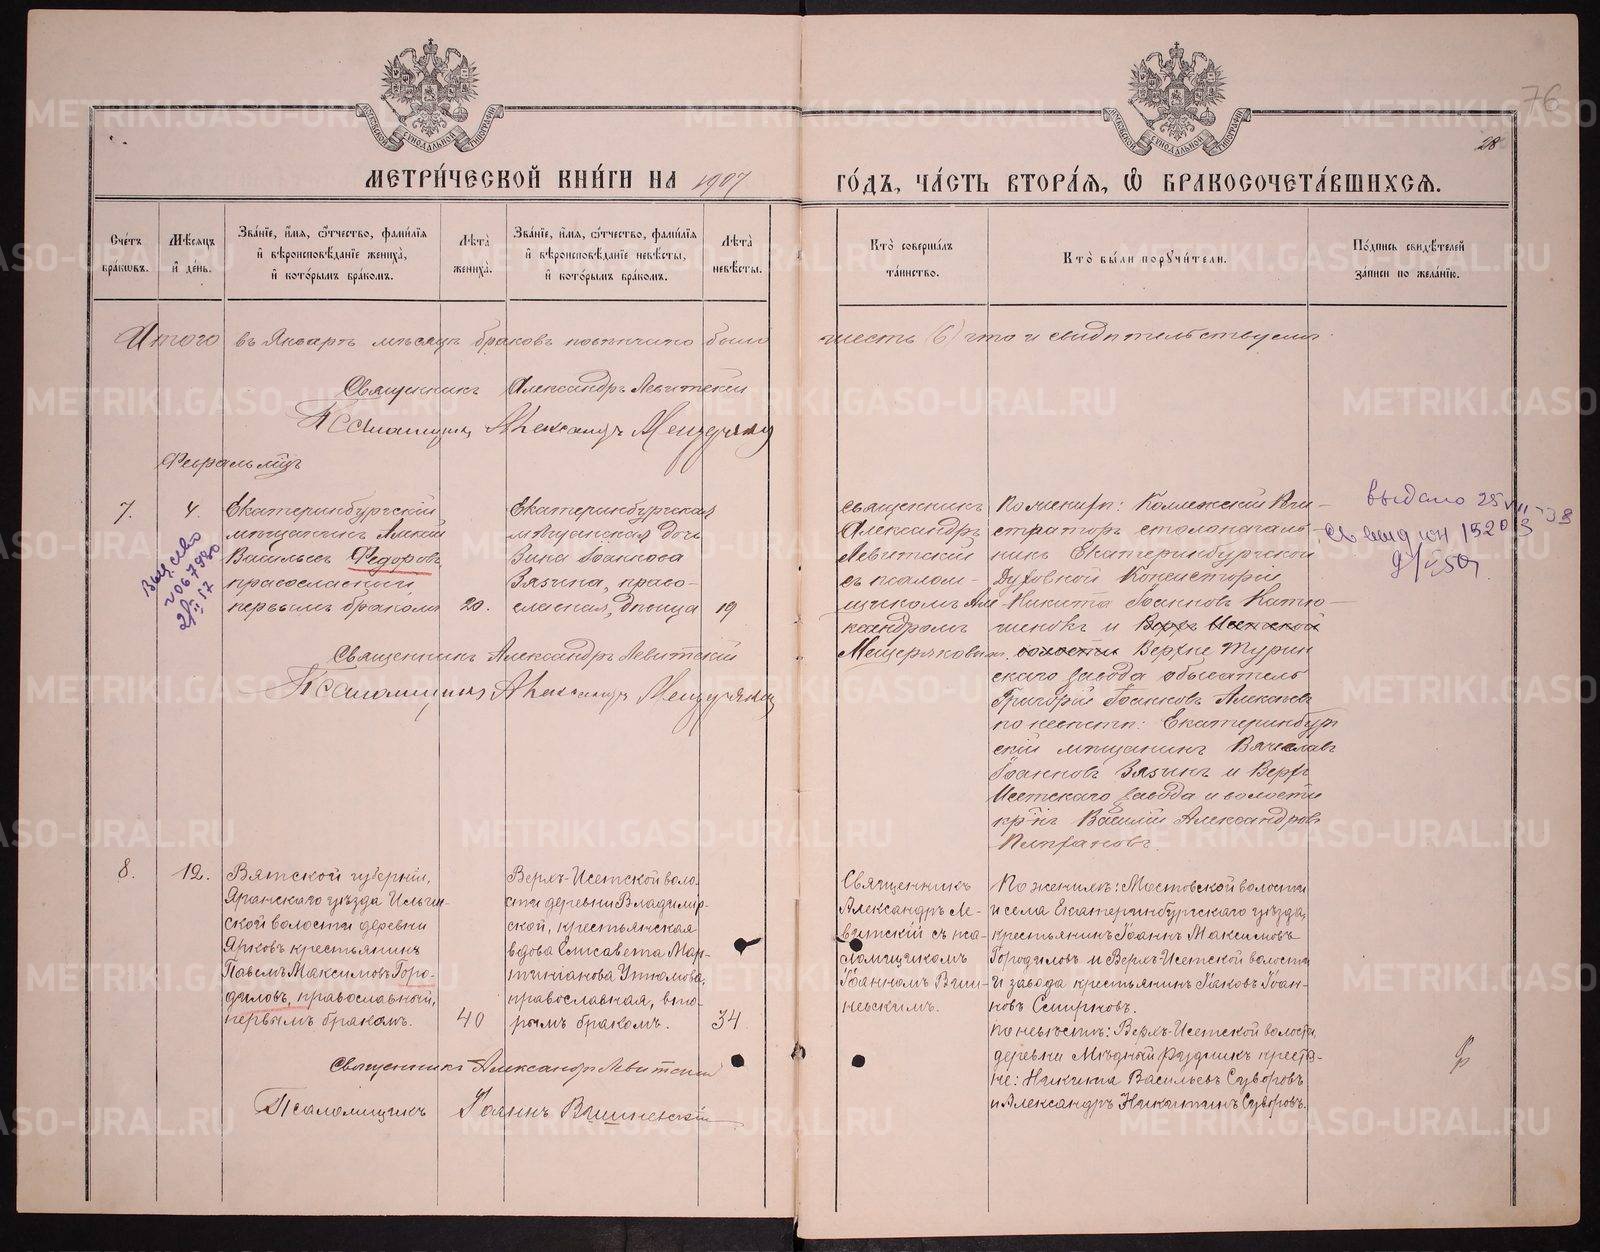 76
28
МЕТРИ́ЧЕСКОЙ КНИ́ГИ НА 1907 ГО́ДЪ, ЧА́СТЬ ВТОРА́Я, Ѡ БРАКОСОЧЕТА́ВШИХСЯ.
Сче́тъ бра́ковъ.
Мѣ́сяцъ и҆ де́нь.
Зва́нїе, и҆́мя, ѻ҆́тчество, фамилія и҆ вѣроисповѣданіе жениха̀, и҆ кото́рымъ бра́комъ.
Лѣта̀ жениха̀.
Зва́нїе, и҆́мя, ѻ҆́тчество, фамилія и҆ вѣроисповѣданіе невѣ́сты, и҆ кото́рымъ бра́комъ.
Лѣта̀ невѣ́сты.
Кто̀ соверша́лъ та́инство.
Кто̀ бы́ли поручи́тели.
По́дпись свидѣ́телей за́писи по жела́нію.
Итого въ Январѣ мѣсяцѣ браковъ повѣнчано было шесть (6) что и свидѣтельствуемъ:
Священникъ Александръ Левитскій
Псаломщикъ Александръ Мещеряковъ
Февраль мцъ
7.
4.
Екатеринбургскій
мѣщанинъ
Васильевъ Федоровъ,
православный
первымъ бракомъ
20.
Екатеринбургская
мѣщанская дочь
Зина Іоаннова
Зязина, право-
славная, дѣвица
19
Священникъ
Александръ
Левитскій
съ псалом-
щикомъ Але-
ксандромъ
Мещеряковымъ.
По жениху: Коллежскій Реги-
страторъ столоначаль-
никъ Екатеринбургской
Духовной Консисторіи
Никита Іоанновъ Катю-
шковъ и Верхъ Исетской
волости Верхне Турин
скаго завода обыватель
Григорій Іоанновъ
по невѣстѣ: Екатеринбург
скій мѣщанинъ Вячеславъ
Іоанновъ Зязинъ и Верхъ
Исетскаго завода и волости
кр-нъ Василій Александровъ
выдано 25
Священникъ Александръ Левитскій
Псаломщикъ Александръ Мещеряковъ
8.
12.
Вятской губерніи,
Яранскаго уѣзда Ильин-
ской волости деревни
Ярковъ крестьянинъ
Павелъ Максимовъ Горо-
диловъ, православный,
первымъ бракомъ.
40
Верхъ-Исетской воло-
сти деревни Владимір-
ской, крестьянская
вдова Елисавета Мар-
тиніанова Утюмова,
православная, вто-
рымъ бракомъ.
34
Священникъ
Александръ Ле-
витскій съ пса-
ломщикомъ
Іоанномъ Виш-
невскимъ.
По женихѣ: Мостовской волости
и села Екатеринбургскаго уѣзда,
крестьянинъ Іоаннъ Максимовъ
Городиловъ и Верхъ-Исетской волости
и завода крестьянинъ Іаковъ Іоан-
новъ Смирновъ.
По невѣстѣ: Верхъ-Исетской волости,
деревни Мѣдный Рудникъ кресть-
не: Никита Васильевъ Суворовъ
и Александръ Никитинъ Суворовъ.
Священникъ Александръ Левитскій
Псаломщикъ Іоаннъ Вишневскій
METRIKI.GASO-URAL.RU